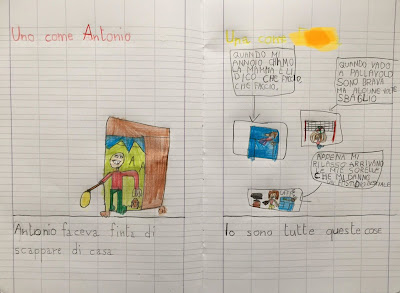 Uno come Antonio
Antonio faceva finta di
scappare di casa
Una come
QUANDO MI
ANNOIO CHIAMO
LA MAMMA E LI
DICO CHE FACCIO,
CHE FACCIO.
QUANDO VADO
A PALLAVOLO
SONO BRAVA
MA ALCUNE VOLTE
SBAGLIO
APPENA MI
RILASSO ARRIVANO
LE MIE SORELLE
CHE MI DANNO
Io sono tutte queste cose